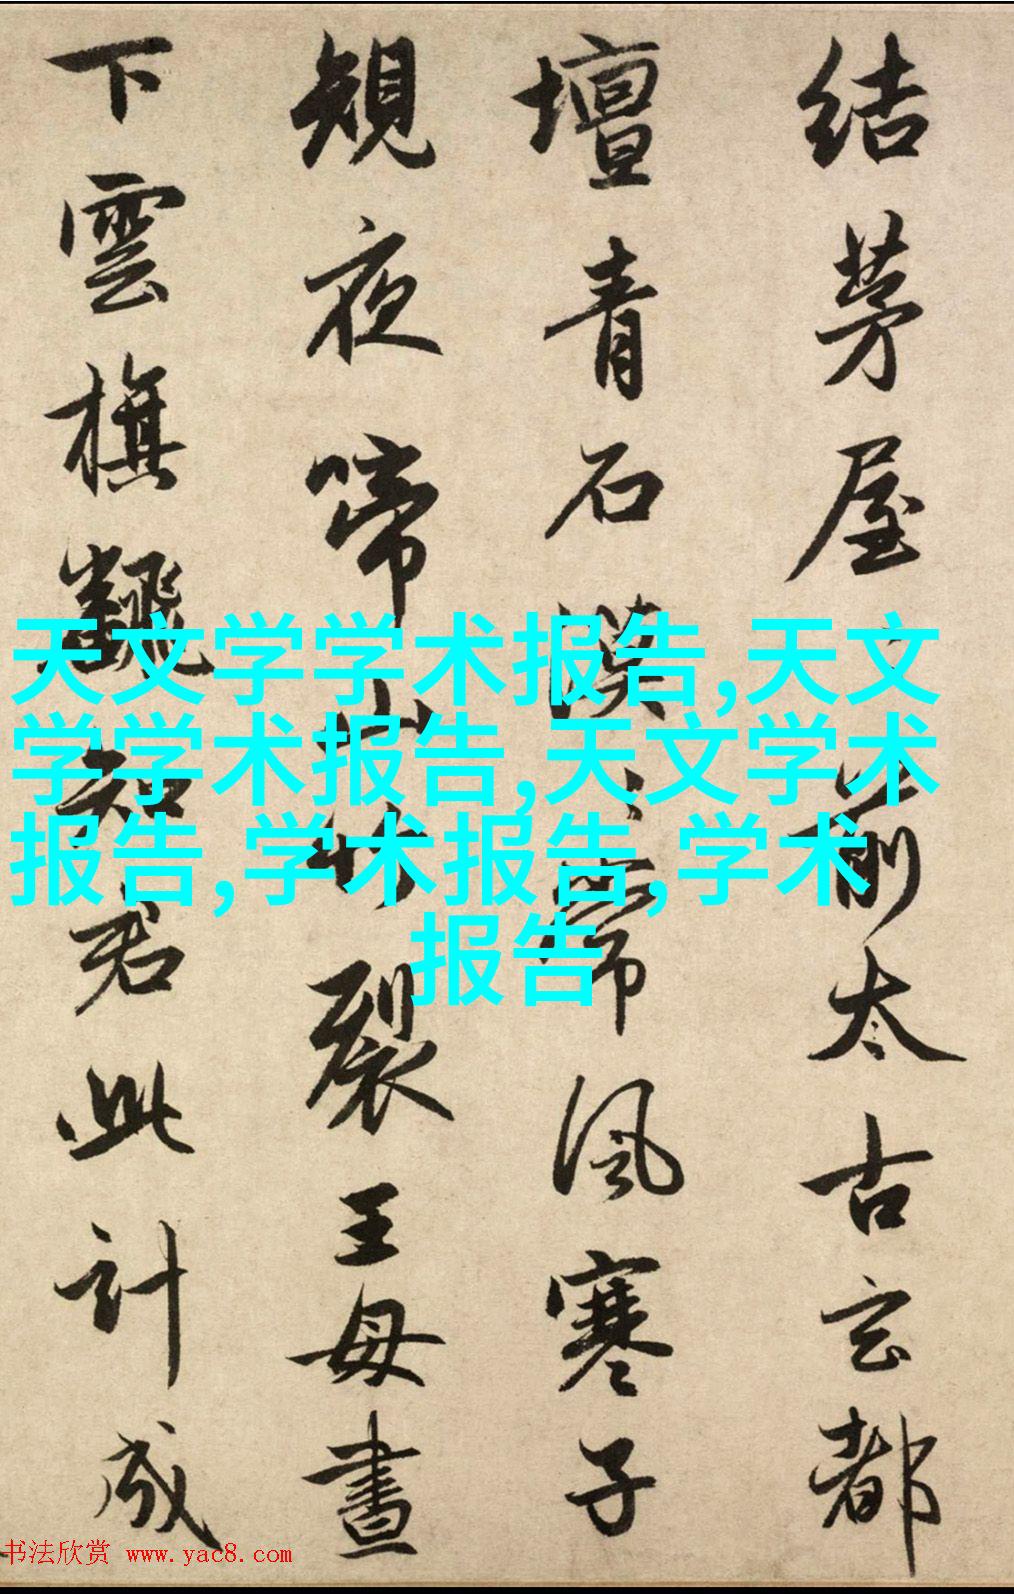 结茅屋〻前太古玄都
壇青石漠〻常風寒子
規夜啼山竹裂王母晝
下雲旗翻知君此計成
天文学学术报告,天文
学学术报告,天文学术
报告,学术报告,学术
报告
书法欣赏 www.yac8.com